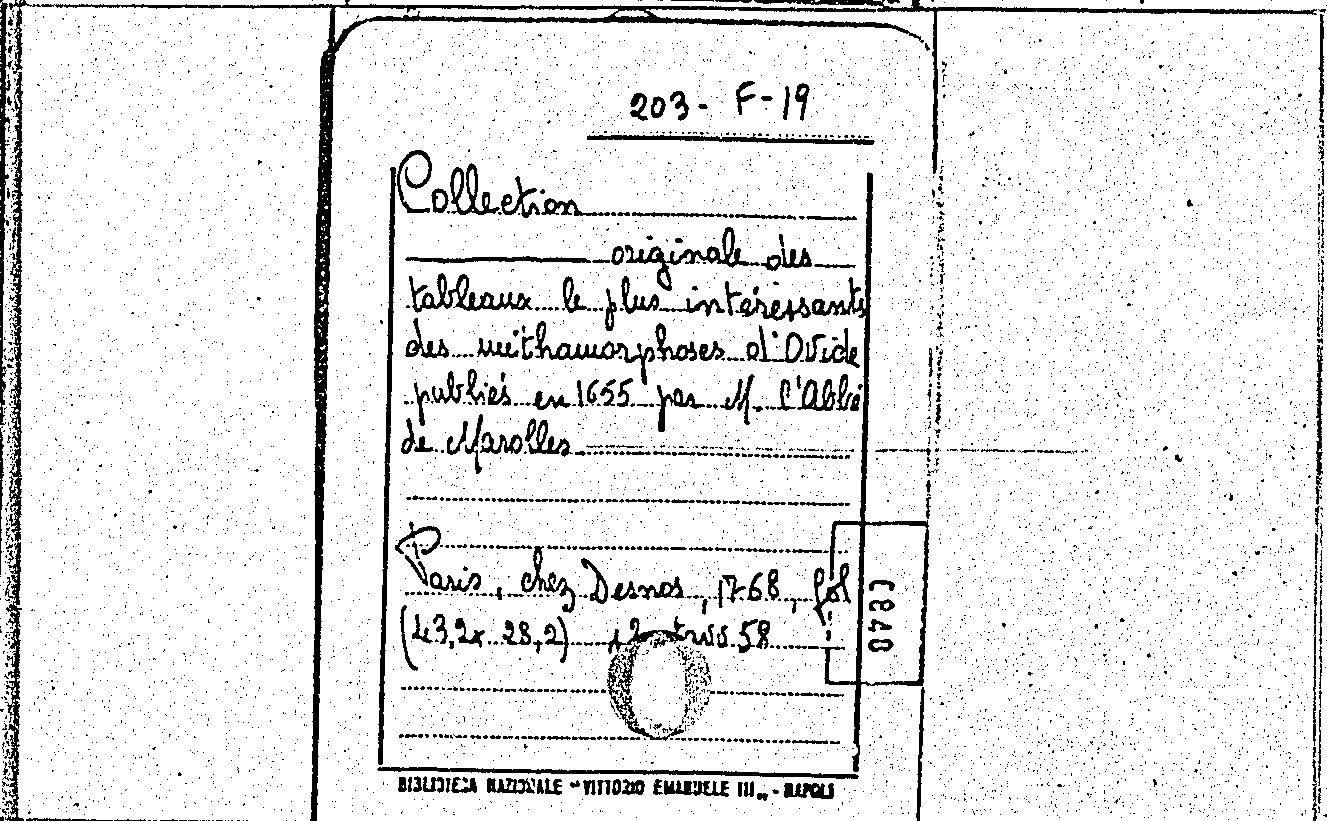 203- F-19
Collection
originale des
tableaux le plus intéressants
des méthamorphoses d'Ovide
publiés en 1655 par M. l'Abbé
de Marolles
Paris, chez Desnos, 1768, fol
(43,2x 28,2) 58
C840
BIBLIOTECA NAZIONALE "VITTORIO EMANUELE III" - NAPOLI